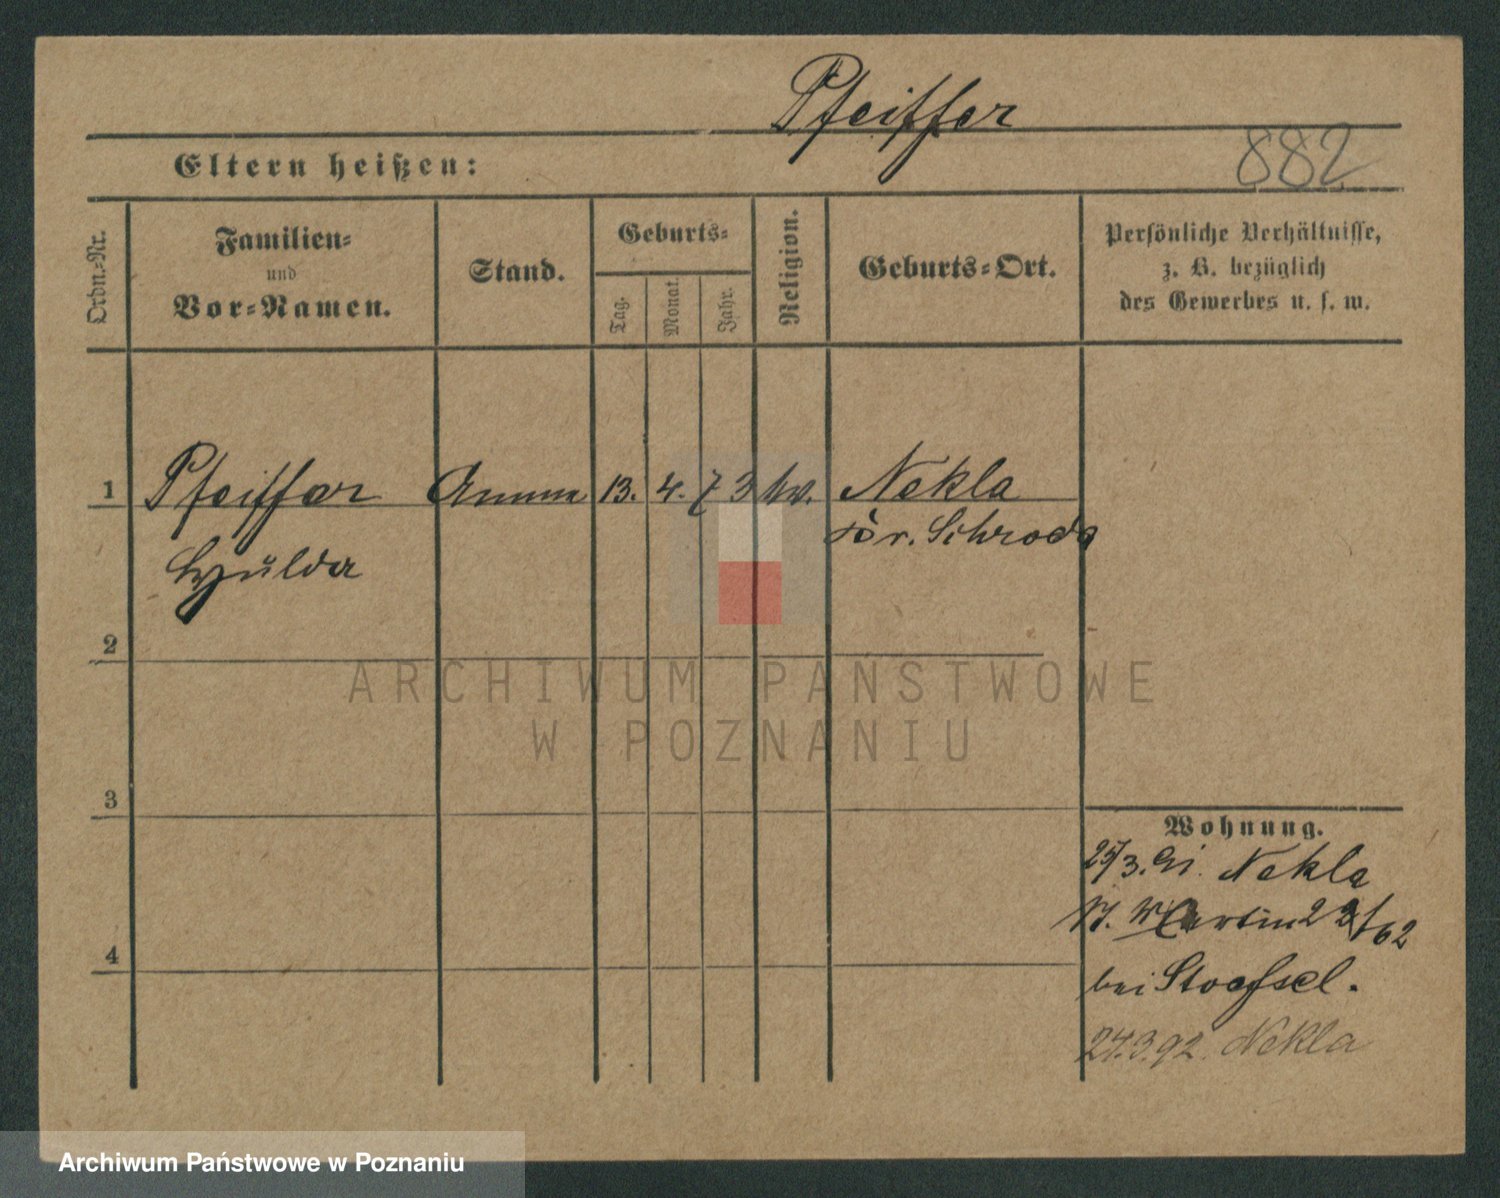 Pfeiffer
882
Eltern heißen:
Ordn.-Nr.
Familien-
und
Vor-Namen.
Stand.
Geburts-
Tag.
Monat.
Jahr.
Religion.
Geburts-Ort.
Persönliche Verhältnisse,
z. B. bezüglich
des Gewerbes u. s. w.
1 Pfeiffer Amme 13. 4. 73 Nekla
Kr. Schroda
Hulda
2
3
4
Wohnung.
25/3. Nekla
St. Martin 22/62
bei Stoessel.
24.3.92. Nekla
ARCHIWUM PAŃSTWOWE
W POZNANIU
Archiwum Państwowe w Poznaniu